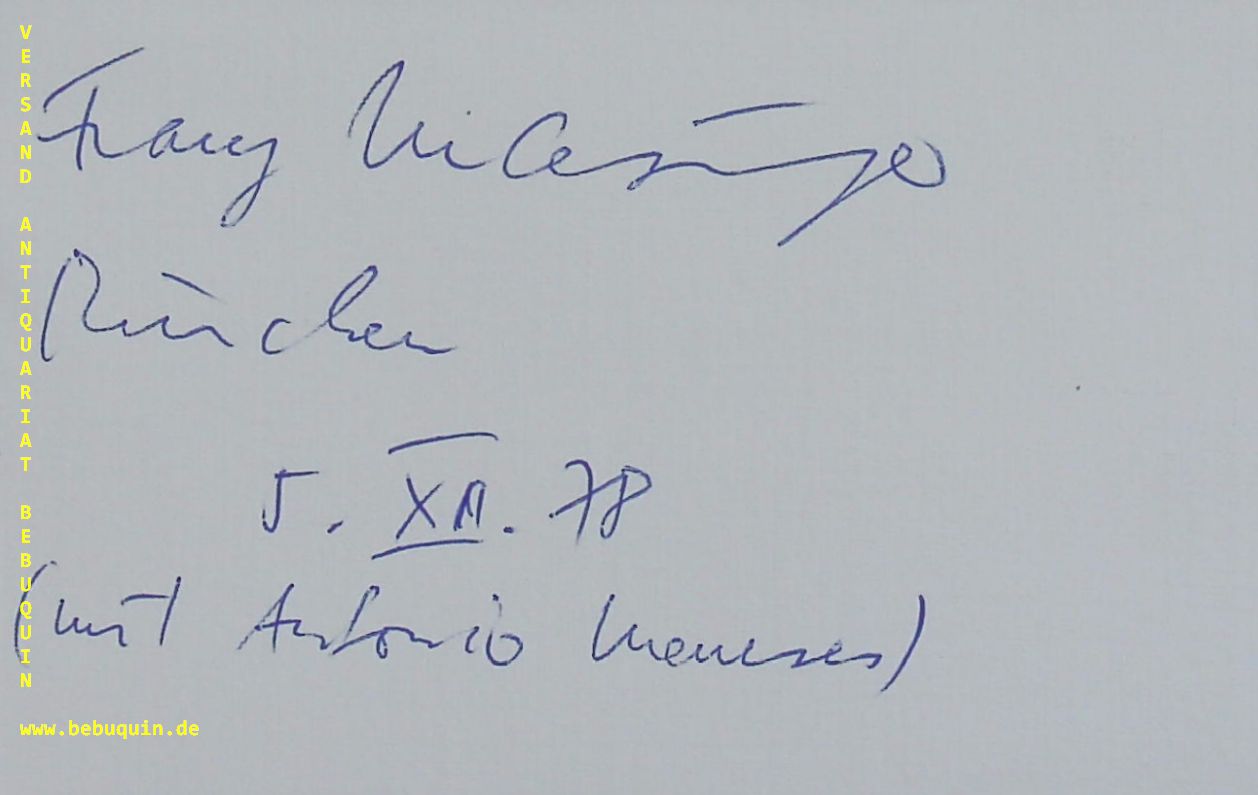 VERSAND ANTIQUARIAT BEBUQUIN
Franz
München
5. XII. 78
(mit Antonio Meneses)
www.bebuquin.de